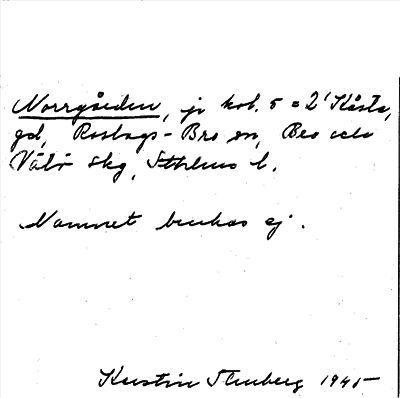 Norrgården, jr kol. 5 = 2¹ Kårsta,
gd, Roslags-Bro sn, Bro och
Vätö skg, Sthlms l.
Namnet brukas ej.
Kerstin Stenberg 1945